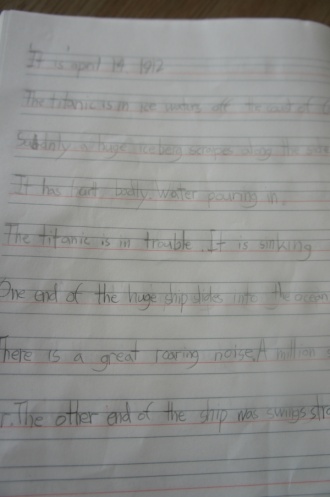 It is april 14 1912
The titanic is in ice waters off the coast of
Suddnly a huge iceberg scrapes along the side
It has hart badly. water pouring in.
The titanic is in trouble. It is sinking
One end of the huge ship slides into the ocean
There is a great roaring noise. A million
r. The other end of the ship was swings stra